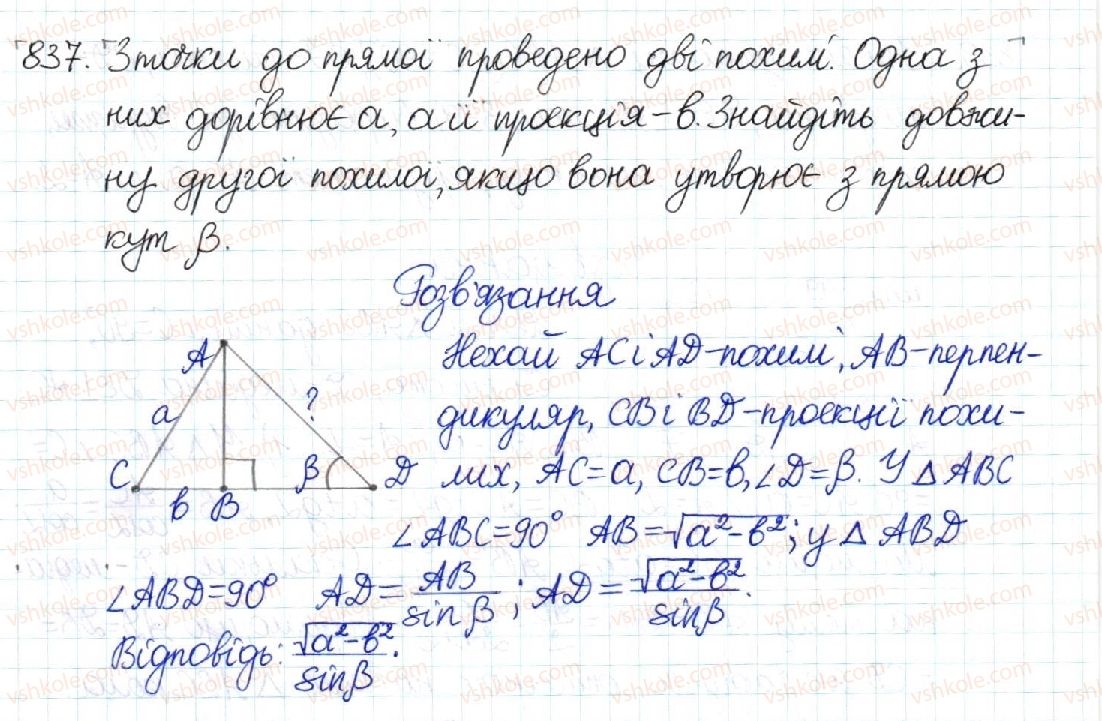 837. З точки до прямої проведено дві похилі. Одна з
них дорівнює a, а її проекція – b. Знайдіть довжи-
ну другої похилої, якщо вона утворює з прямою
кут β.
Розв'язання
A
a
?
C
b
B
β
D
Нехай AC і AD – похилі, AB – перпен-
дикуляр, CB і BD – проекції похи-
лих, AC = a, CB = b, ∠D = β. У △ ABC
∠ABC = 90° AB = √a² – b²; у △ ABD
∠ABD = 90° AD = AB / sin β ; AD = √a² – b² / sin β.
Відповідь: √a² – b² / sin β.
vshkole.com